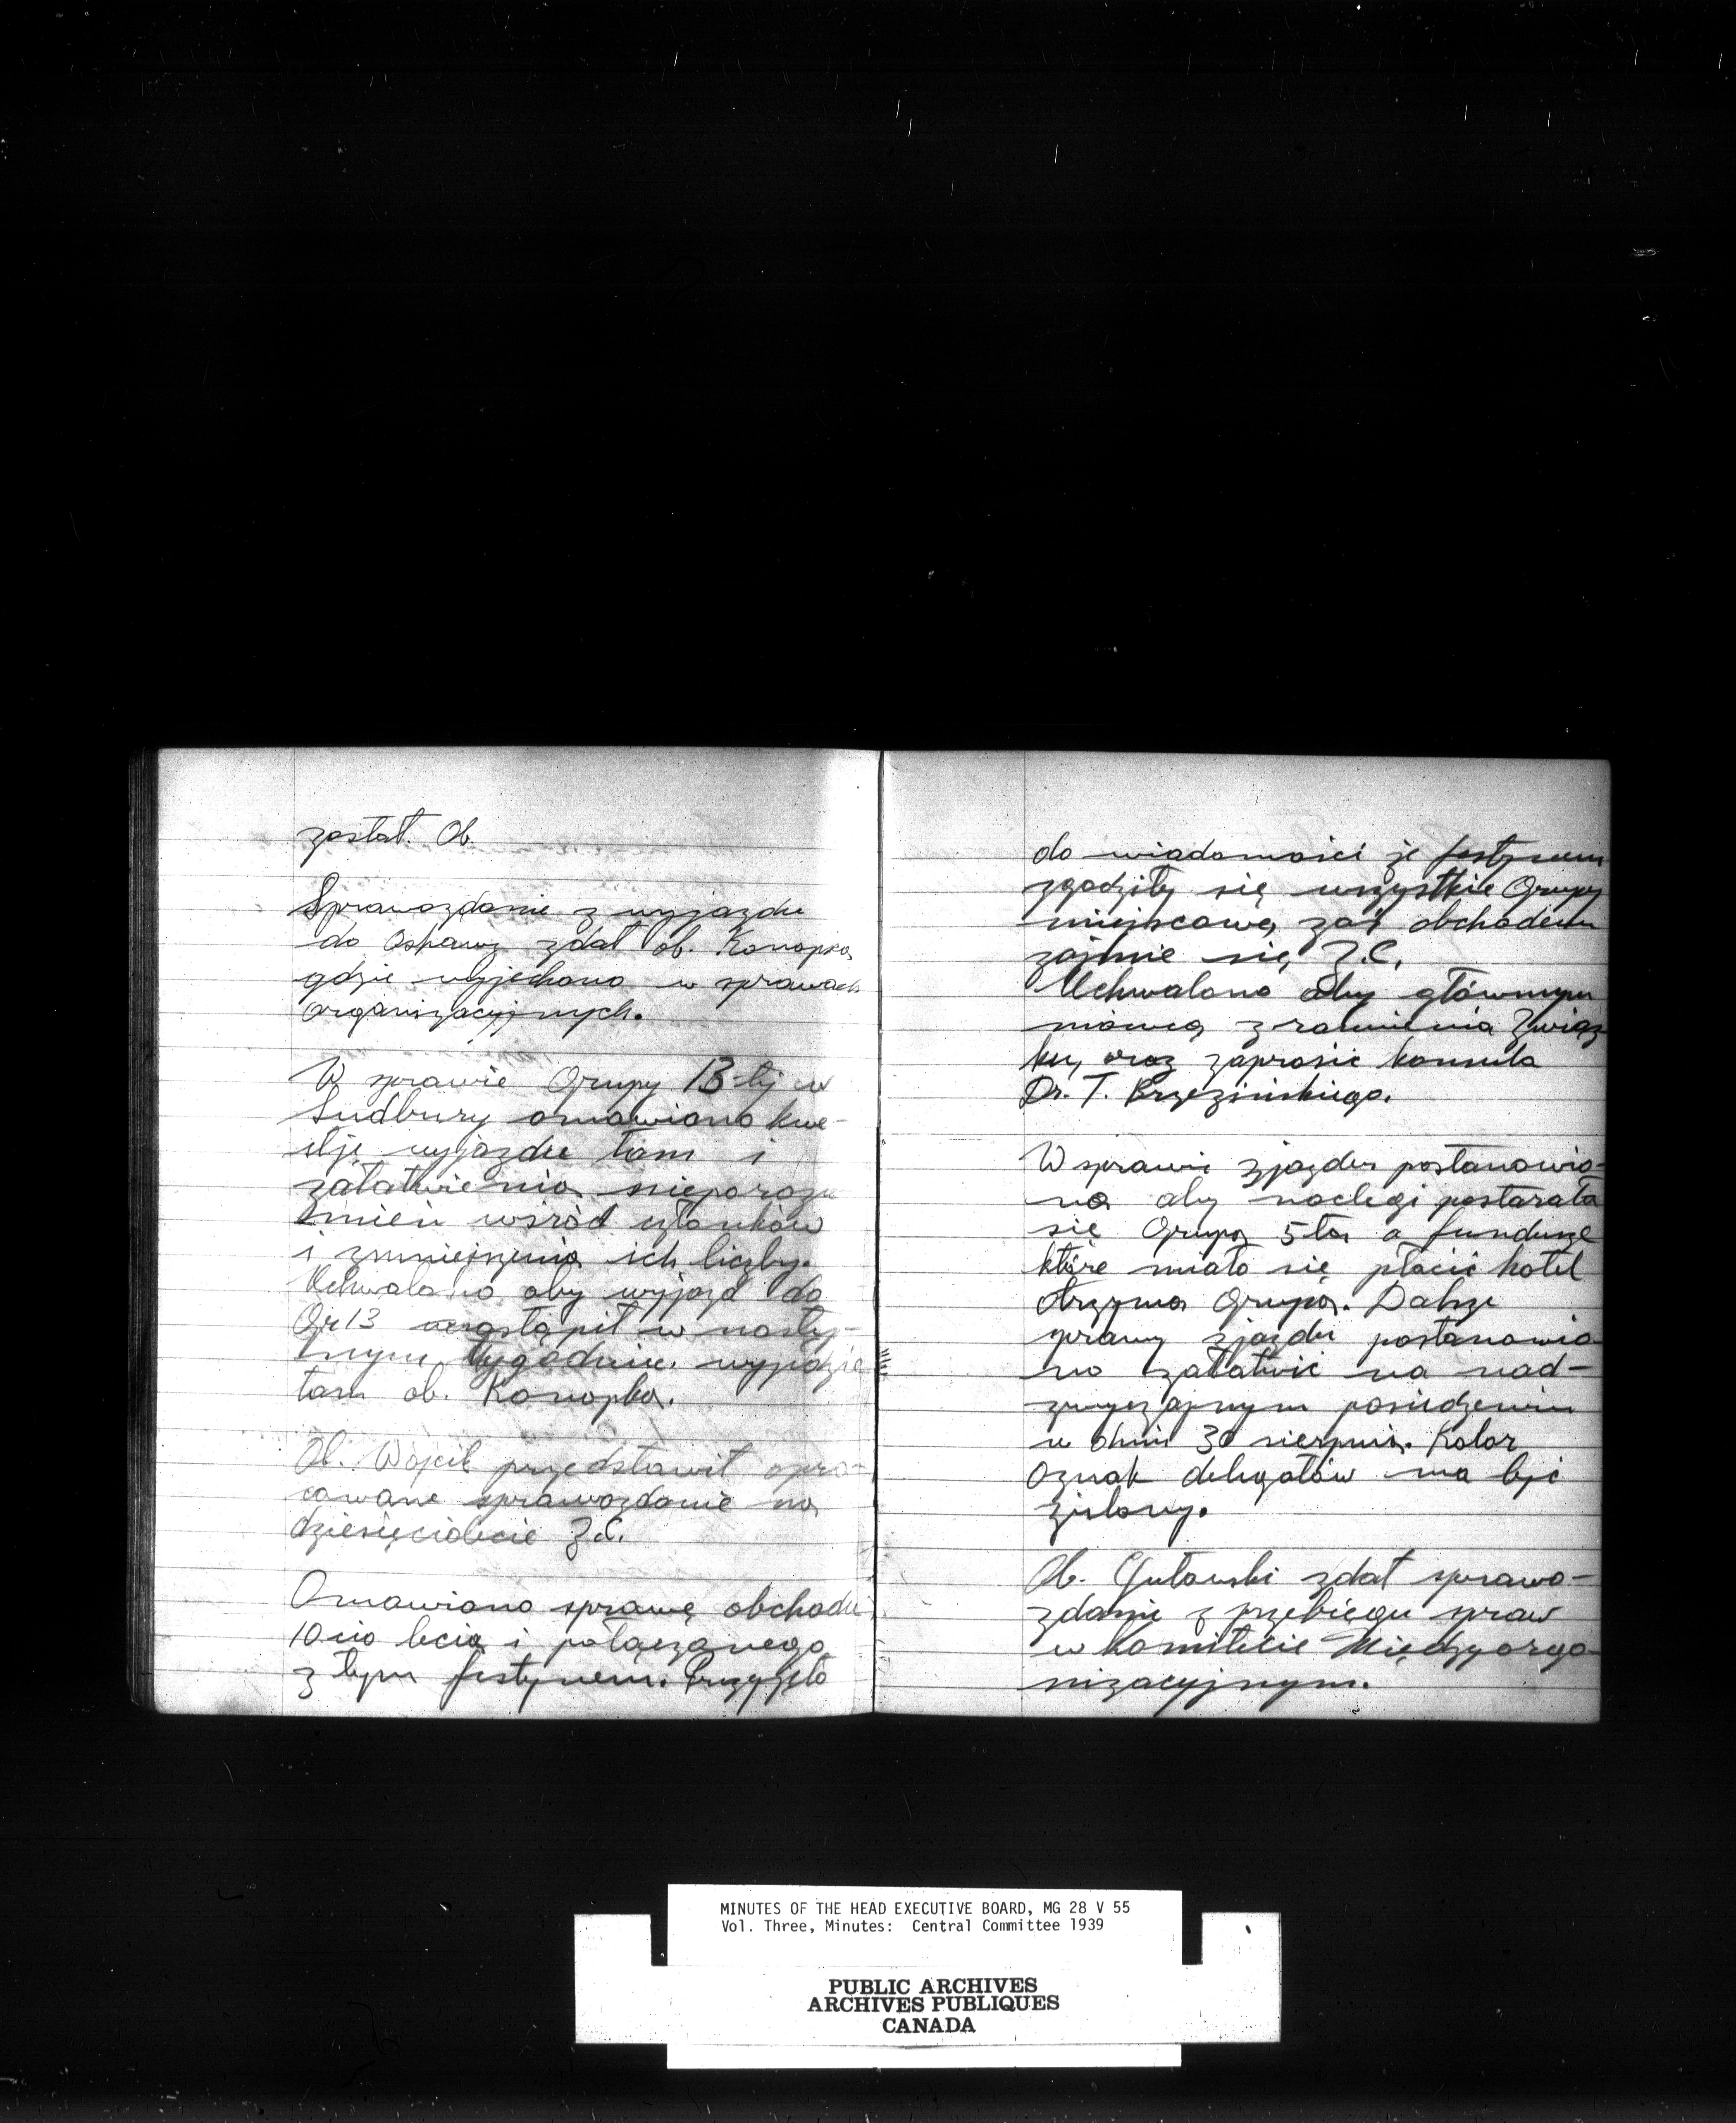 zostat. Ob.
Sprawozdanie z wyjazdu
do Oshawy zdał ob. Konopka,
gdzie wyjechano w sprawach
organizacyjnych.
W sprawie Grupy 13-tej w
Sudbury omawiano kwe-
stję wyjazdu tam i
załatwienia nieporozu
mień wśród członków
i zmniejszenia ich liczby.
Uchwalono aby wyjazd do
Gr 13 nastąpił w nastę-
pnym tygodniu. wyjedzie
tam ob. Konopka.
Ob. Wójcik przedstawił opra-
cowane sprawozdanie na
dziesięciolecie Z.C.
Omawiano sprawę obchodu
10cio lecia i połączonego
z tym festynem. Przyjęto
do wiadomości że festynem
zgodziły się wszystkie Grupy
miejscowe, zaś obchodem
zajmie się Z.C.
Uchwalono aby głównym
mówcą z ramienia Związ
ku, oraz zaprosić konsula
Dr. T. Brzezińskiego.
W sprawie zjazdu postanowio-
no aby noclegi postarała
się Grupa 5ta a fundusze
które miało się płacić hotel
otrzyma Grupa. Dalsze
sprawy zjazdu postanowio
no załatwić na nad-
zwyczajnym posiedzeniu
w dniu 30 sierpnia. Kolor
oznak delegatów ma być
zielony.
Ob. Gutowski zdał sprawo-
zdanie z przebiegu spraw
w Komitecie Międzyorga-
nizacyjnym.
MINUTES OF THE HEAD EXECUTIVE BOARD, MG 28 V 55
Vol. Three, Minutes: Central Committee 1939
PUBLIC ARCHIVES
ARCHIVES PUBLIQUES
CANADA